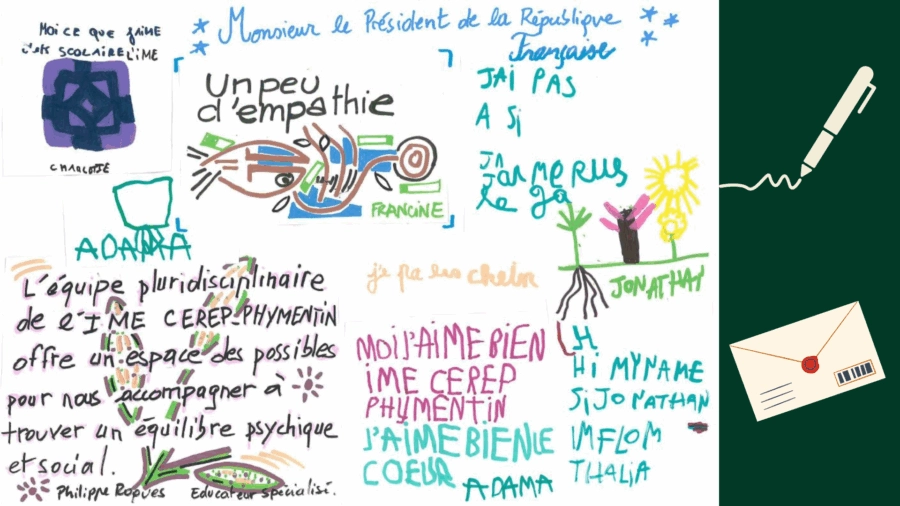 Monsieur le Président de la République
Française
MOI CE QUE J'AIME
SCOLAIRE L'IME
CHARLOTTE
Un peu
d'empathie
FRANCINE
ADAMA
J'AI PAS
A Si
JONATHAN
L'équipe pluridisciplinaire
de l'IME CEREP-PHYMENTIN
offre un espace des possibles
pour nous accompagner à
trouver un équilibre psychique
et social.
Philippe Roques Educateur spécialisé.
MOI J'AIME BIEN
IME CEREP
PHYMENTIN
J'AIME BIEN LE
COEUR
ADAMA
H
Hi MY NAME
Si JONATHAN
IM FLOM
THALiA